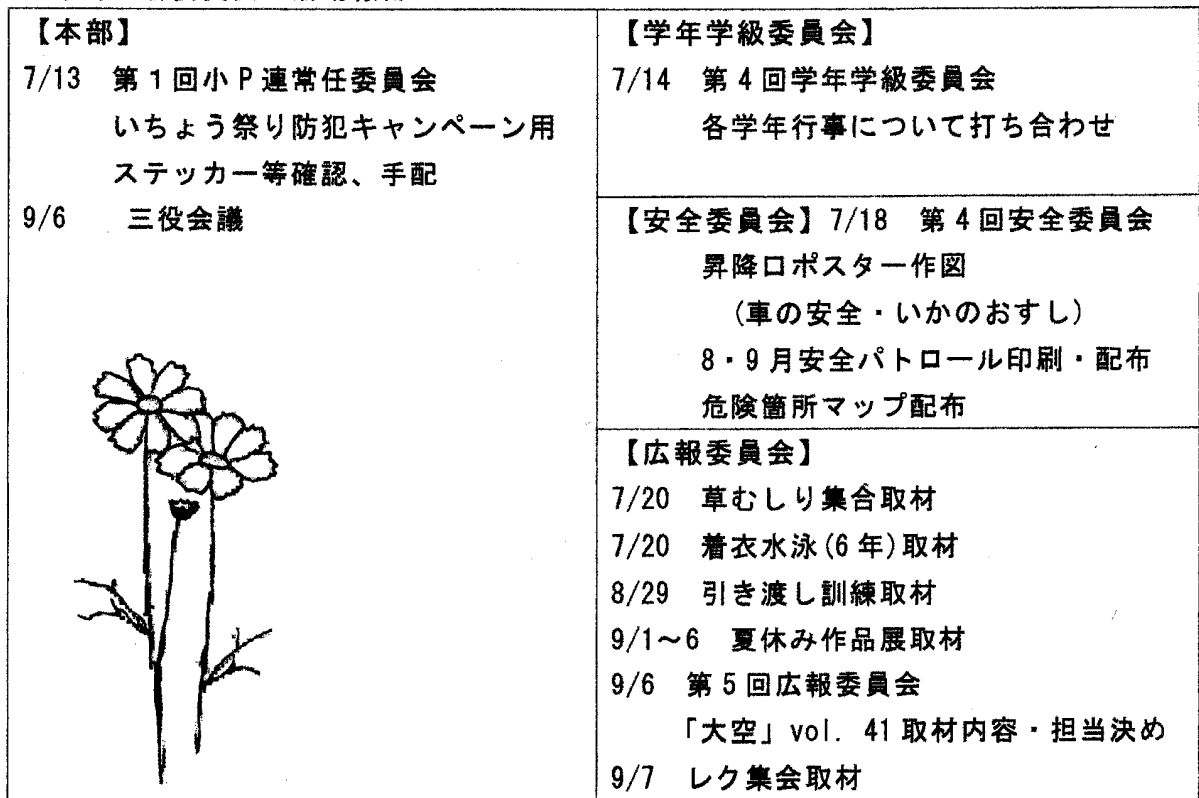 【本部】
7/13 第1回小P連常任委員会
いちょう祭り防犯キャンペーン用
ステッカー等確認、手配
9/6 三役会議
【学年学級委員会】
7/14 第4回学年学級委員会
各学年行事について打ち合わせ
【安全委員会】7/18 第4回安全委員会
昇降口ポスター作図
(車の安全・いかのおすし)
8・9月安全パトロール印刷・配布
危険箇所マップ配布
【広報委員会】
7/20 草むしり集合取材
7/20 着衣水泳(6年)取材
8/29 引き渡し訓練取材
9/1～6 夏休み作品展取材
9/6 第5回広報委員会
「大空」vol. 41取材内容・担当決め
9/7 レク集会取材